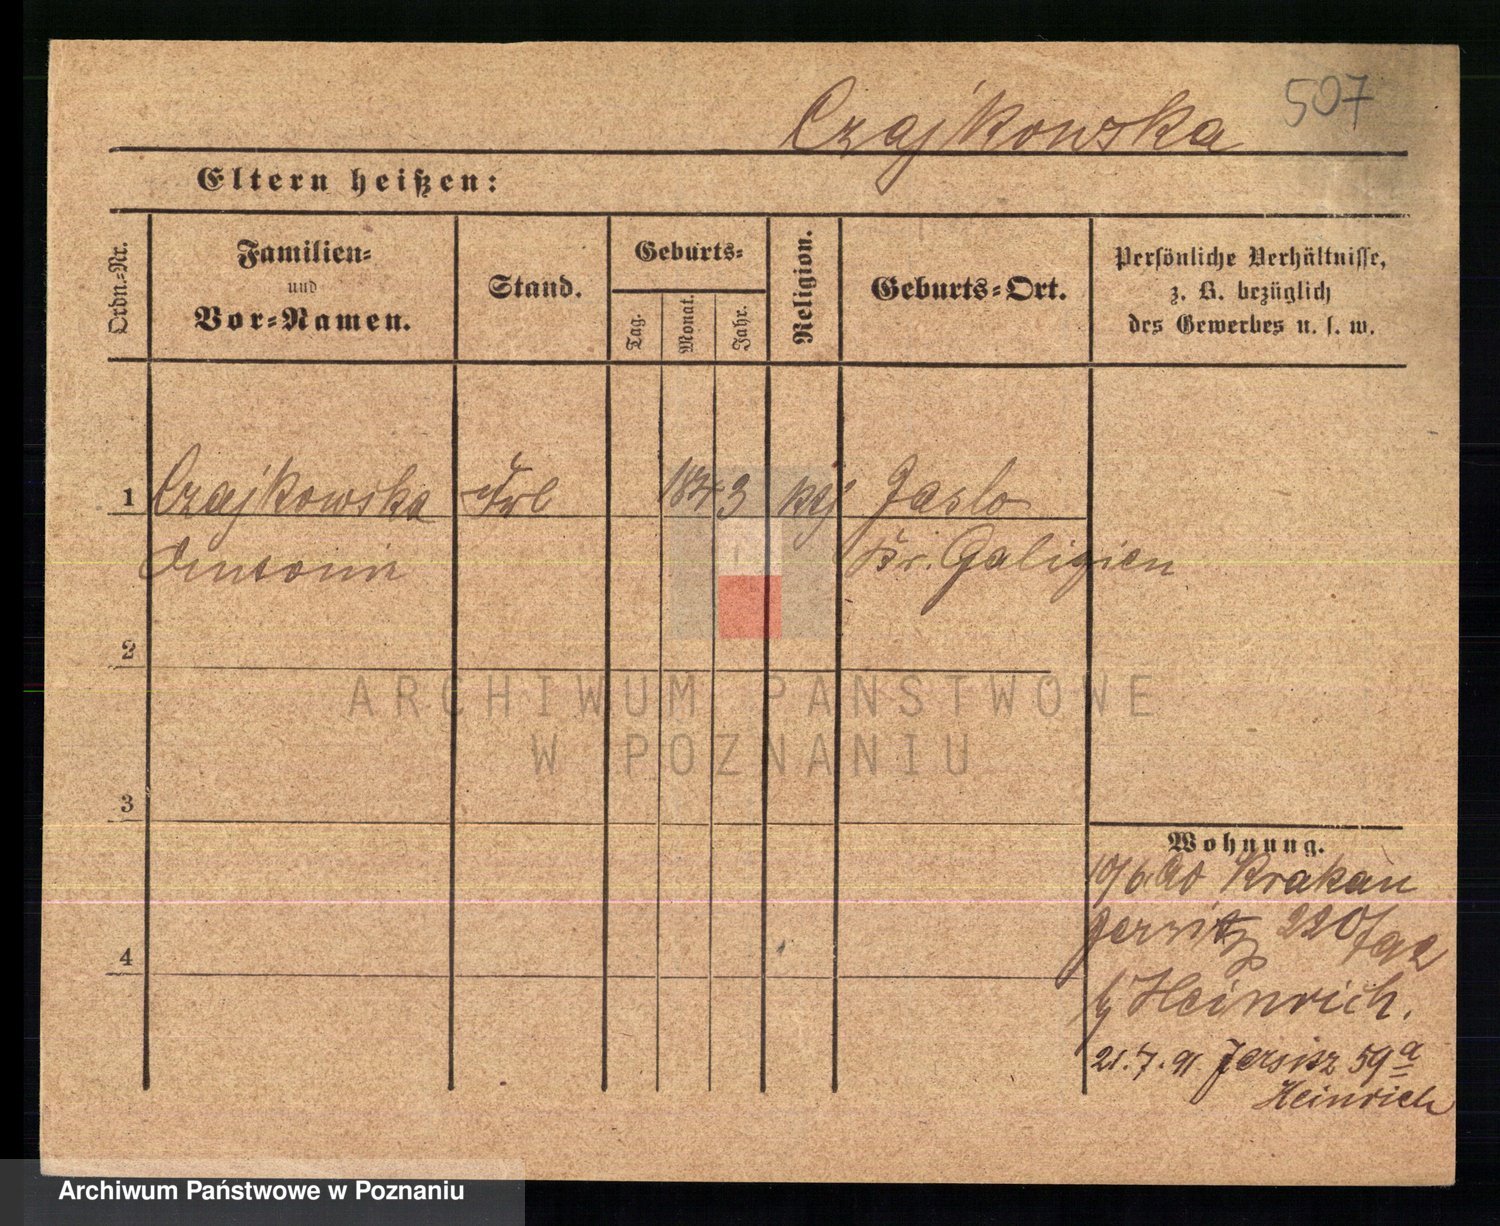 507
Czajkowska
Eltern heißen:
Ordn.=Nr.
Familien=
und
Vor=Namen.
Stand.
Geburts=
Tag.
Monat.
Jahr.
Religion.
Geburts=Ort.
Persönliche Verhältnisse,
z. B. bezüglich
des Gewerbes u. s. w.
1 Czajkowska Frl 1843 Jaslo
Antonin Kr. Galizien
2
ARCHIWUM PAŃSTWOWE
W POZNANIU
3
4
Wohnung.
10/6 90 Krakau
Jersitz 220/92
b/ Heinrich.
21.7.91. Jersitz 59a
Heinrich
Archiwum Państwowe w Poznaniu